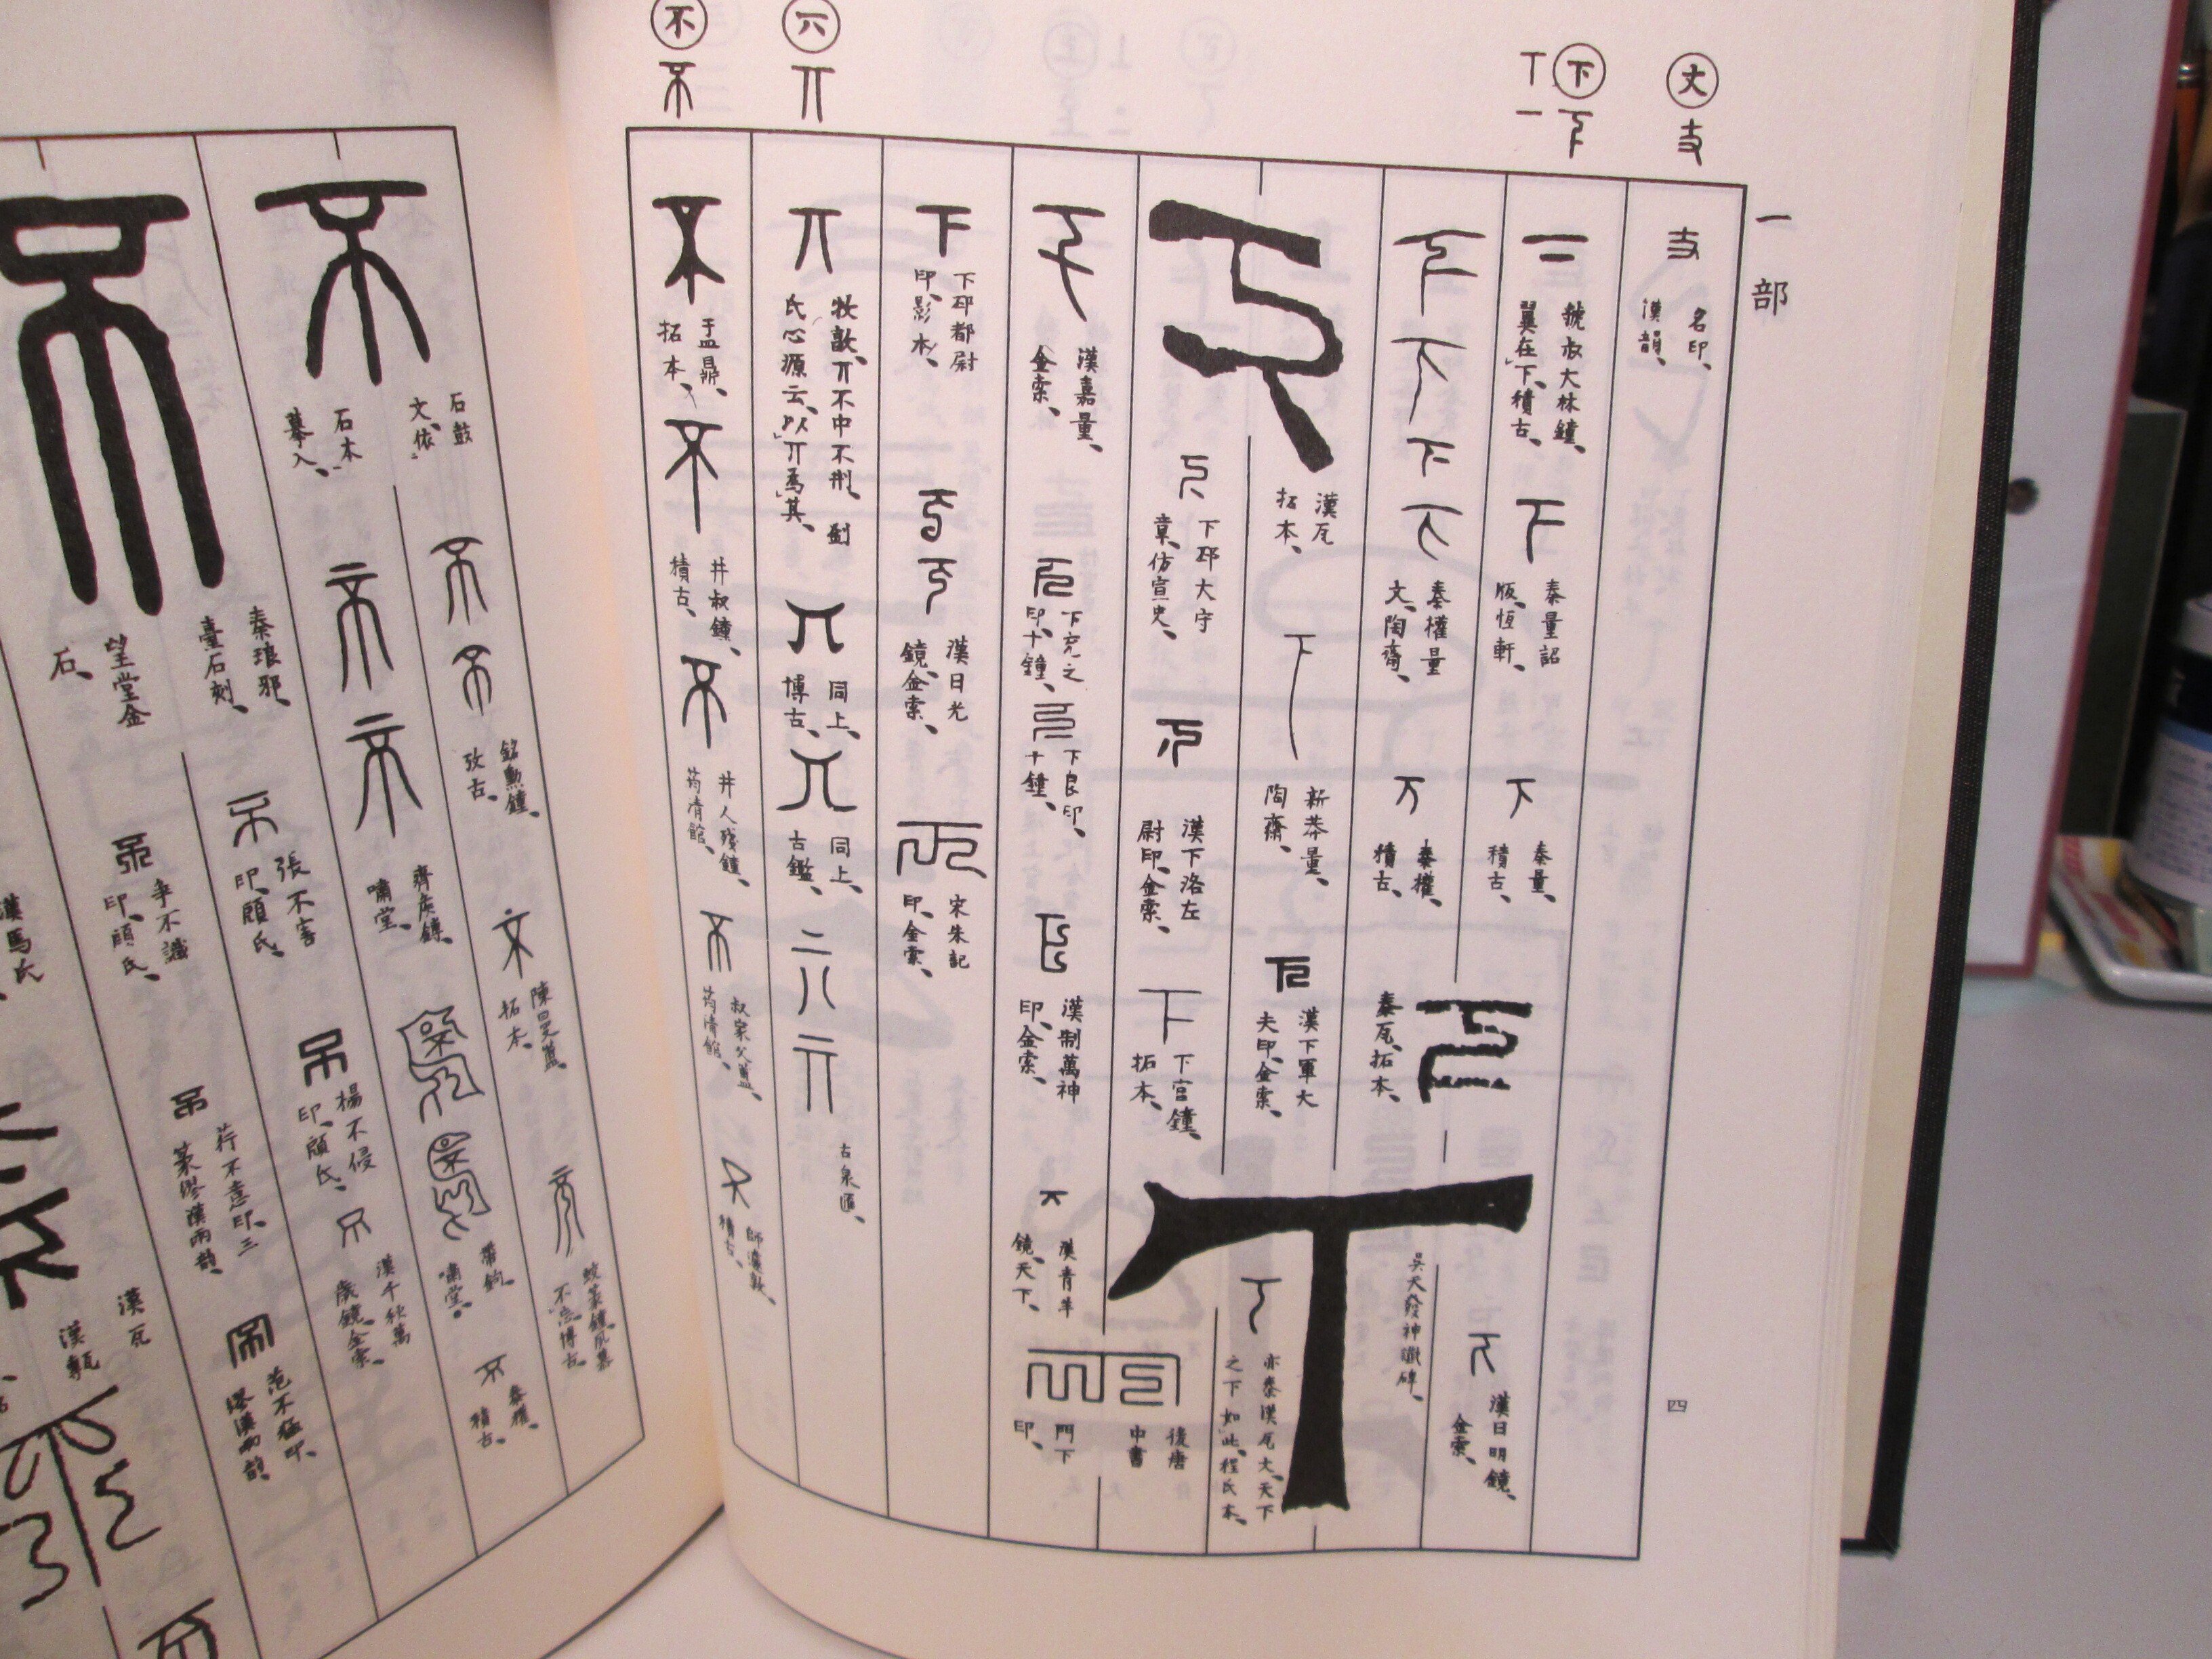 一部
四
丈
下
丅
一
丌
不
名印、
漢韻、
虢叔大林鐘、
翼在下、積古、
秦量詔
版、恆軒、
秦量、
積古、
漢日明鏡、
金索、
秦權量
文、陶齋、
秦權、
積古、
秦瓦、拓本、
吳天發神讖碑、
漢瓦
拓本、
新莽量、
陶齋、
漢下軍大
夫印、金索、
亦秦漢瓦文、天下
之下如此、程氏本、
下邳大守
章、仿宣史、
漢下洛左
尉印、金索、
下宮鐘、
拓本、
後唐
中書
門下
印、
漢嘉量、
金索、
下充之
印、十鐘、
下良印、
十鐘、
漢制萬神
印、金索、
漢青羊
鏡、天下、
下邳都尉
印、影本、
漢日光
鏡、金索、
宋朱記
印、金索、
牧敦、丌不中不刑、劉
氏心源云、以丌為其、
同上、
博古、
同上、
古鑑、
古泉匯、
盂鼎、
拓本、
井叔鐘、
積古、
井人殘鐘、
筠清館、
叔家父簠、
筠清館、
積古、
石鼓
文、依
石本
摹入、
攷古、
陳曼簠、
拓本、
不
博古、
齊侯鎛、
嘯堂、
帶鉤、
嘯堂、
秦權、
積古、
秦琅邪
臺石刻、
望堂金
石、
張不害
印、顧氏、
楊不侵
印、顧氏、
漢千秋萬
歲鏡、金索、
印、顧氏、
范不
漢馬氏
漢瓦